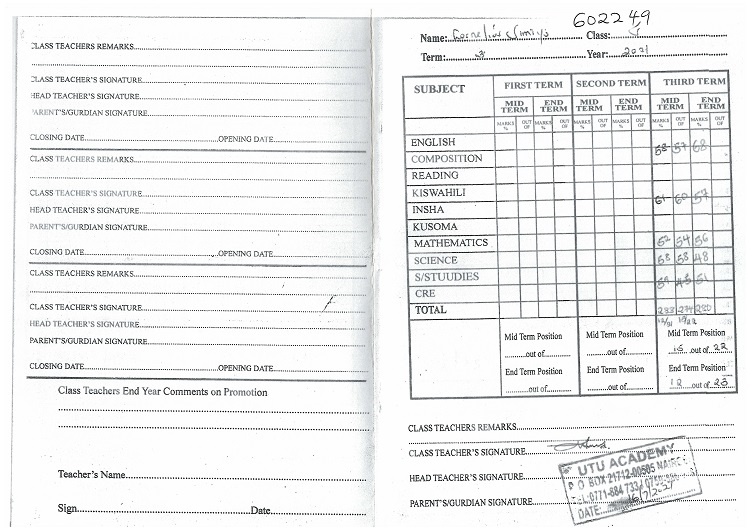 CLASS TEACHERS REMARKS
CLASS TEACHER'S SIGNATURE
HEAD TEACHER'S SIGNATURE
PARENT'S/GURDIAN SIGNATURE
CLOSING DATE OPENING DATE
CLASS TEACHERS REMARKS
CLASS TEACHER'S SIGNATURE
HEAD TEACHER'S SIGNATURE
PARENT'S/GURDIAN SIGNATURE
CLOSING DATE OPENING DATE
CLASS TEACHERS REMARKS
CLASS TEACHER'S SIGNATURE
HEAD TEACHER'S SIGNATURE
PARENT'S/GURDIAN SIGNATURE
CLOSING DATE OPENING DATE
Class Teachers End Year Comments on Promotion
Teacher's Name
Sign Date
602249
Name: Class:
Term: 3 Year: 2021
SUBJECT FIRST TERM SECOND TERM THIRD TERM
MID TERM END TERM MID TERM END TERM MID TERM END TERM
MARKS % OUT OF MARKS % OUT OF MARKS % OUT OF MARKS % OUT OF MARKS % OUT OF MARKS % OUT OF
ENGLISH
COMPOSITION 58 57 68
READING
KISWAHILI
INSHA 61 60 57
KUSOMA
MATHEMATICS 52 54 56
SCIENCE 58 58 48
S/STUUDIES
CRE 51
TOTAL 280
Mid Term Position Mid Term Position Mid Term Position
out of out of 15 out of 22
End Term Position End Term Position End Term Position
out of out of 12 out of 23
CLASS TEACHERS REMARKS
CLASS TEACHER'S SIGNATURE
HEAD TEACHER'S SIGNATURE
PARENT'S/GURDIAN SIGNATURE
UTU ACADEMY
P O BOX 21712-00505
TEL:0771-684 733
DATE: